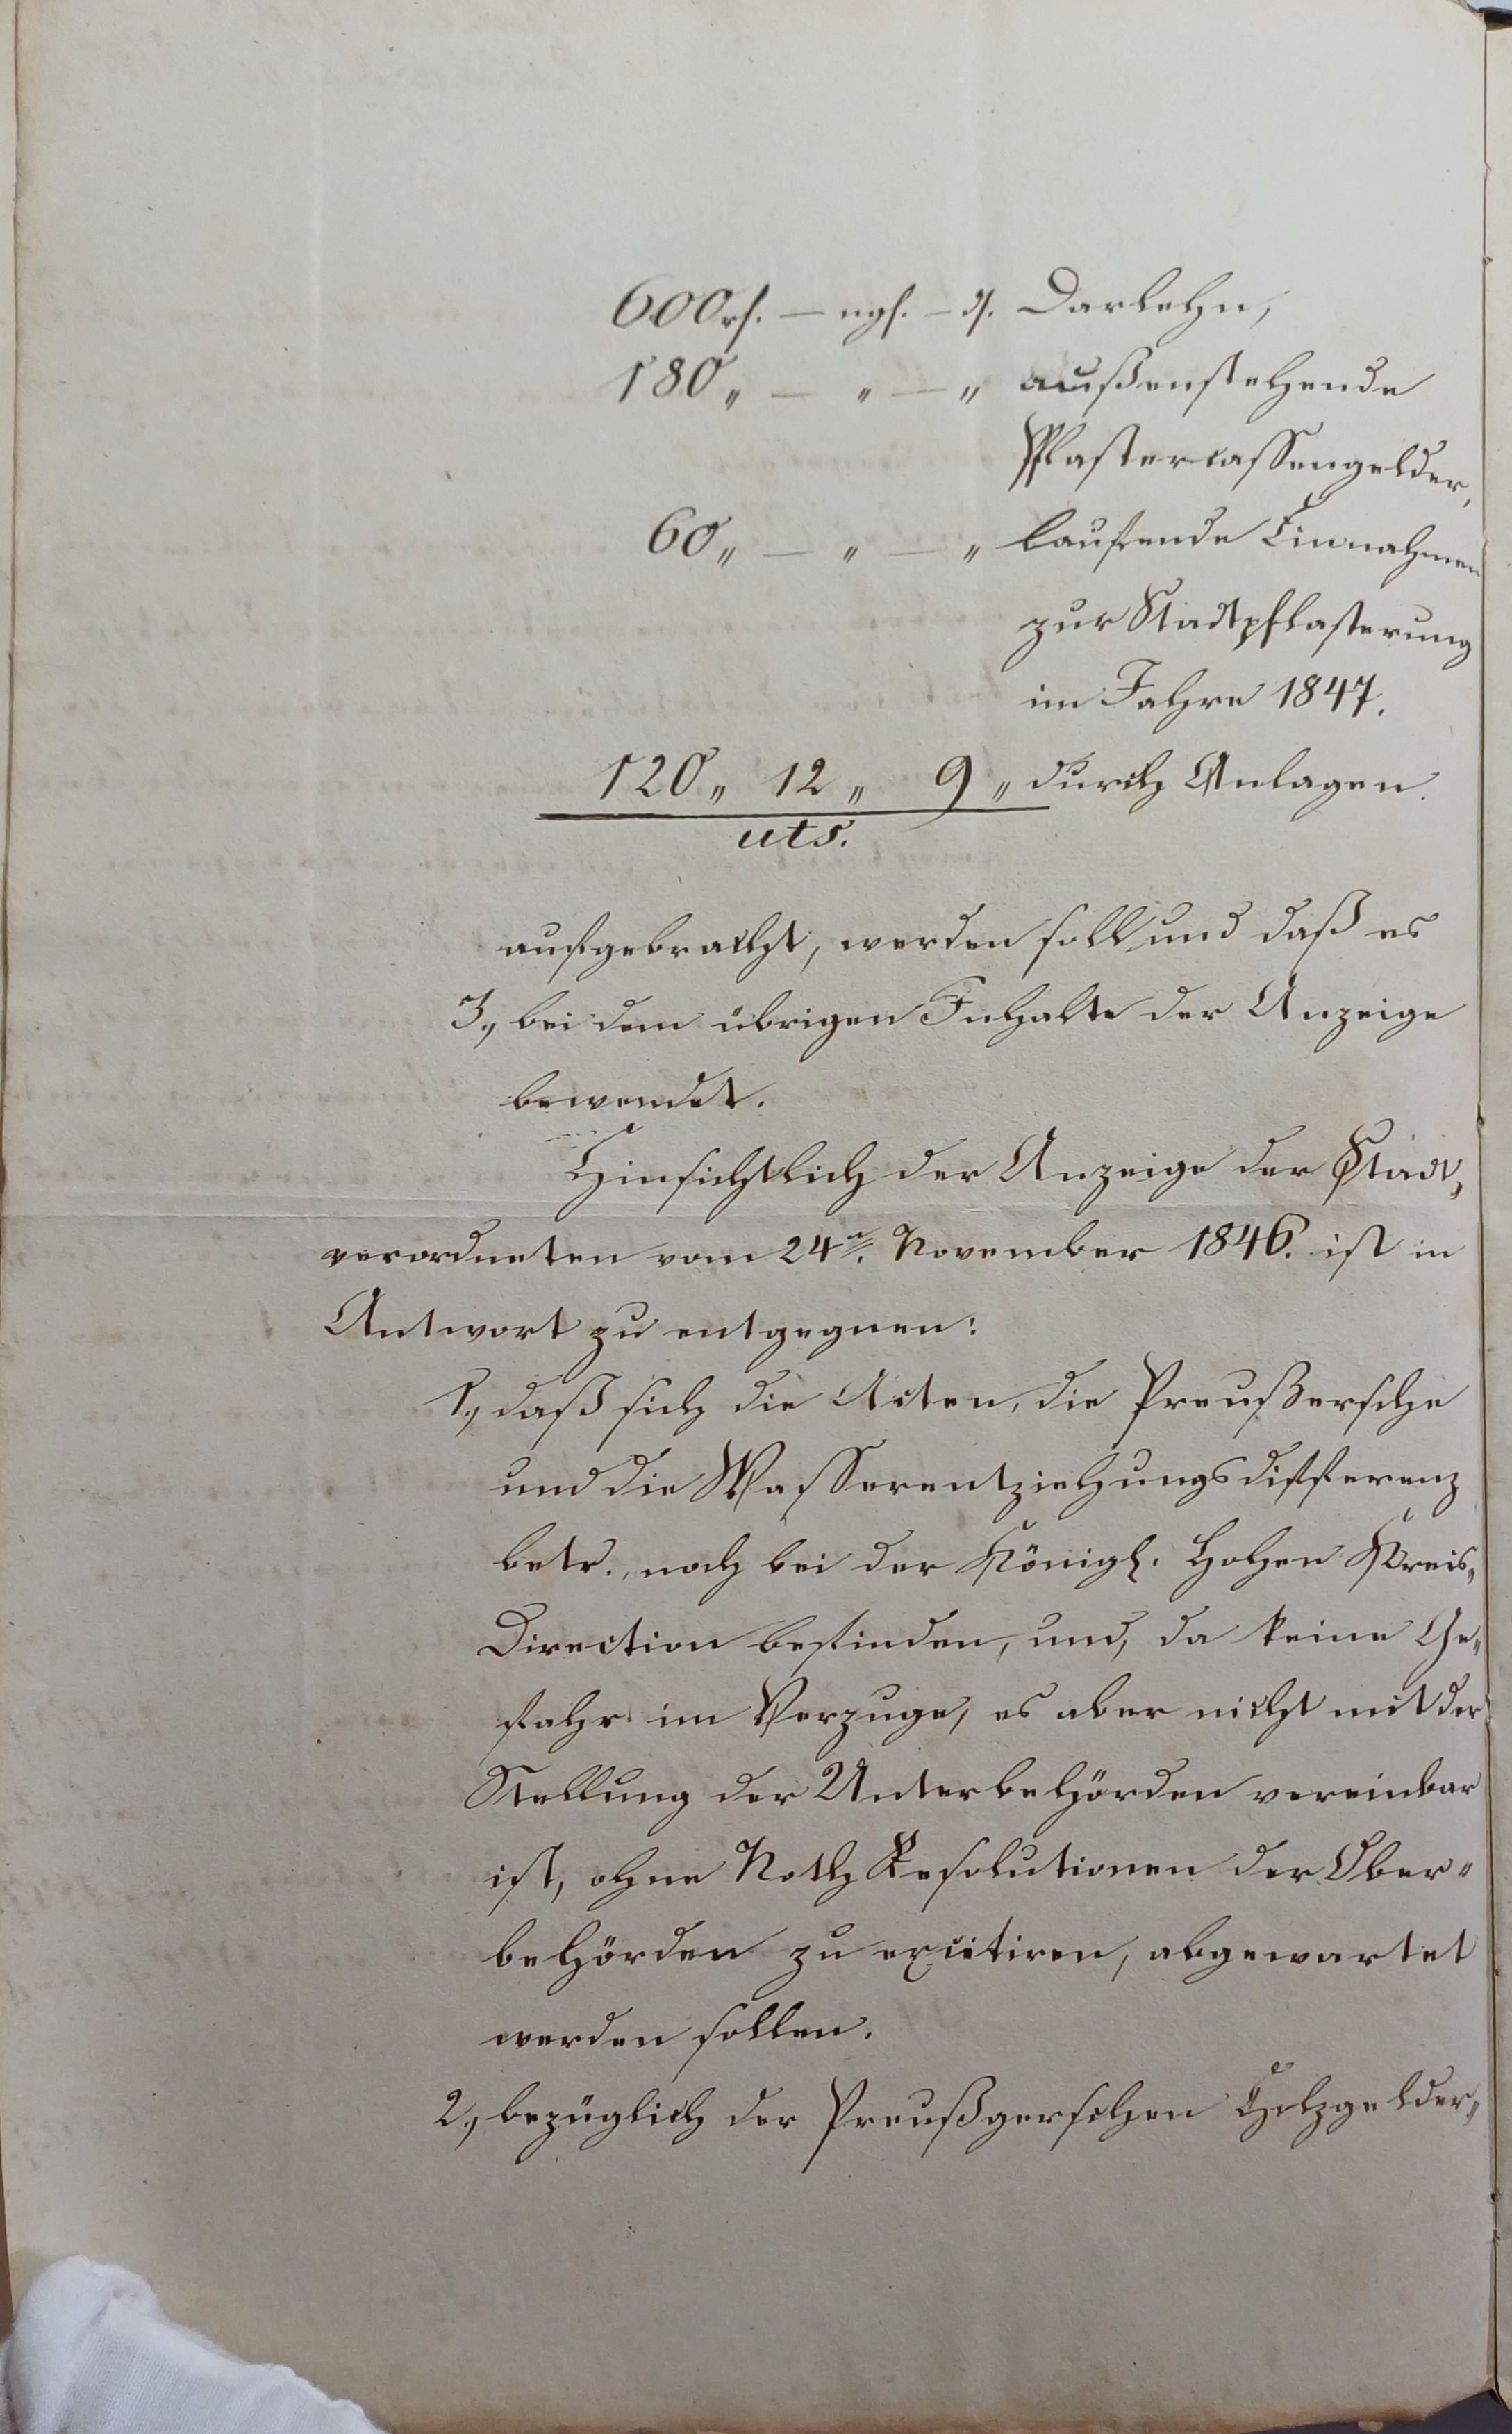 600 rf. — ngl. — d. Darlehn,
180 „ — „ — „ außenstehende
Pflastercassengelder,
60 „ — „ — „ laufende Einnahmen
zur Stadtpflasterung
im Jahre 1847.
120 „ 12 „ 9 „ durch Anlagen.
uts.
aufgebracht, werden soll und daß es
3., bei dem übrigen Inhalte der Anzeige
bewendet.
Hinsichtlich der Anzeige der Stadt„
verordneten vom 24n. November 1846. ist in
Antwort zu entgegnen:
1., daß sich die Acten, die Preußersche
und die Wasserentziehungsdifferenz
betr., noch bei der Königl. Hohen Kreis„
Direction befinden, und, da keine Ge„
fahr im Verzuge, es aber nicht mit der
Stellung der Unterbehörden vereinbar
ist, ohne Noth Resolutionen der Ober„
behörden zu excitiren, abgewartet
werden sollen.
2., bezüglich der Preußgerschen Holzgelder„